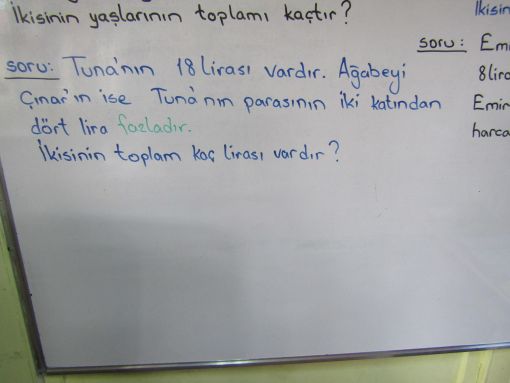 İkisinin yaşlarının toplamı kaçtır?
soru: Tuna'nın 18 lirası vardır. Ağabeyi
Çınar'ın ise Tuna'nın parasının iki katından
dört lira fazladır.
İkisinin toplam kaç lirası vardır?
İkisin
soru: Em
8 lira
Emir
harca